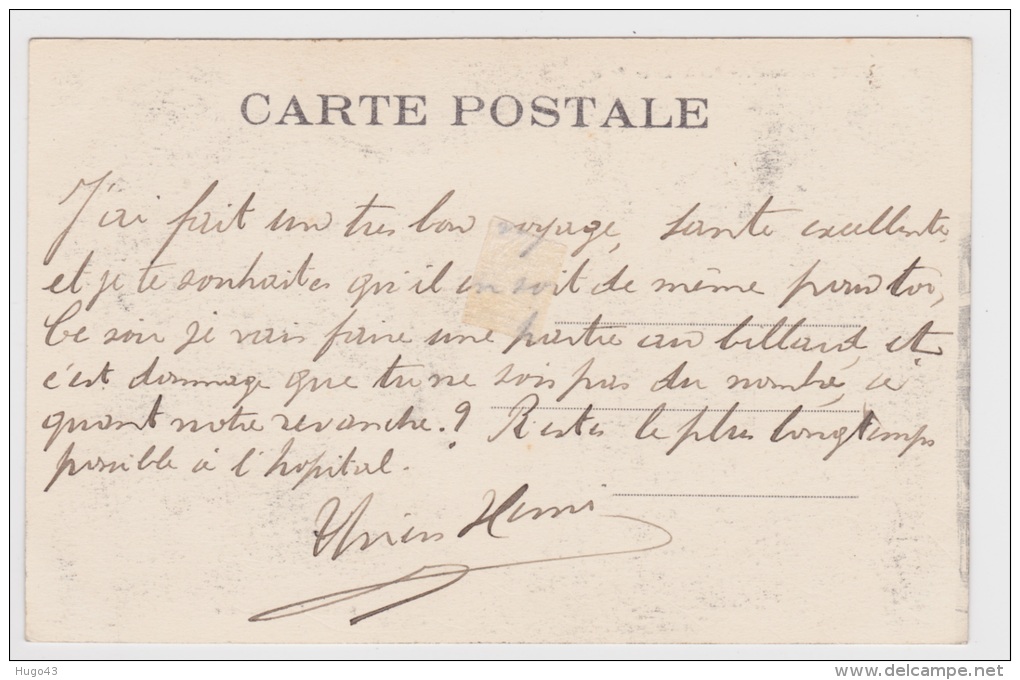 CARTE POSTALE
J'ai fait un tres bon voyage, sante excellente,
et je te souhaites qu'il en soit de même pour toi,
Ce soir je vais faire une partie au billard, et
c'est dommage que tu ne sois pas du nombre, a
quant notre revanche.? Restes le plus longtemps
possible a l'hopital.
Henri
Hugo43
www.delcampe.net